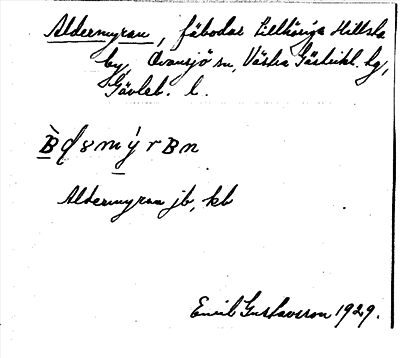 Aldermyran, fäbodar tillhöriga Hillsta
by, Ovansjö sn, Västra Gästrikl. hg,
Gävleb. l.
Aldermyran jb, kb
Emil Gustavsson 1929.